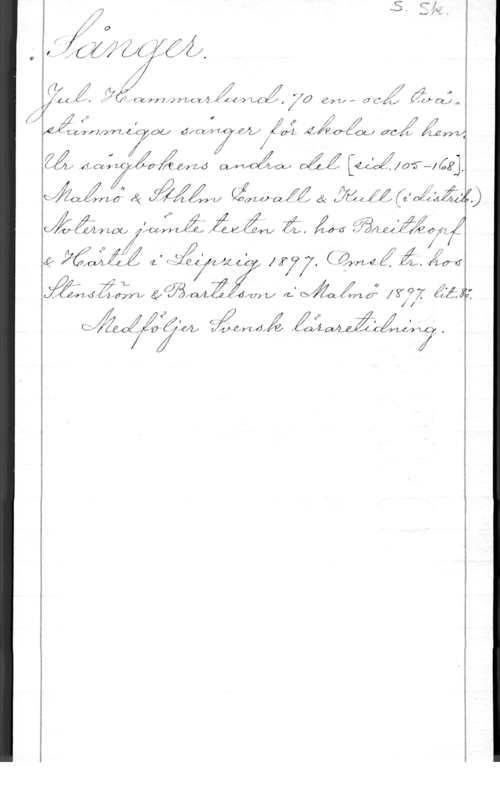 S. Sk.
Sånger.
Jul. Hammarlund. 70 en- och två-
stämmiga sånger för skola och hem.
Ur sångbokens andra del [sid. 105-168].
Malmö & Sthlm Envall & Kull (i distrib.)
Noterna jämte texten tr. hos Breitkopf
& Härtel i Leipzig 1897. Omsl. tr. hos
Stenström & Bartelson i Malmö 1897. lit. 8º.
Medföljer Svensk läraretidning.